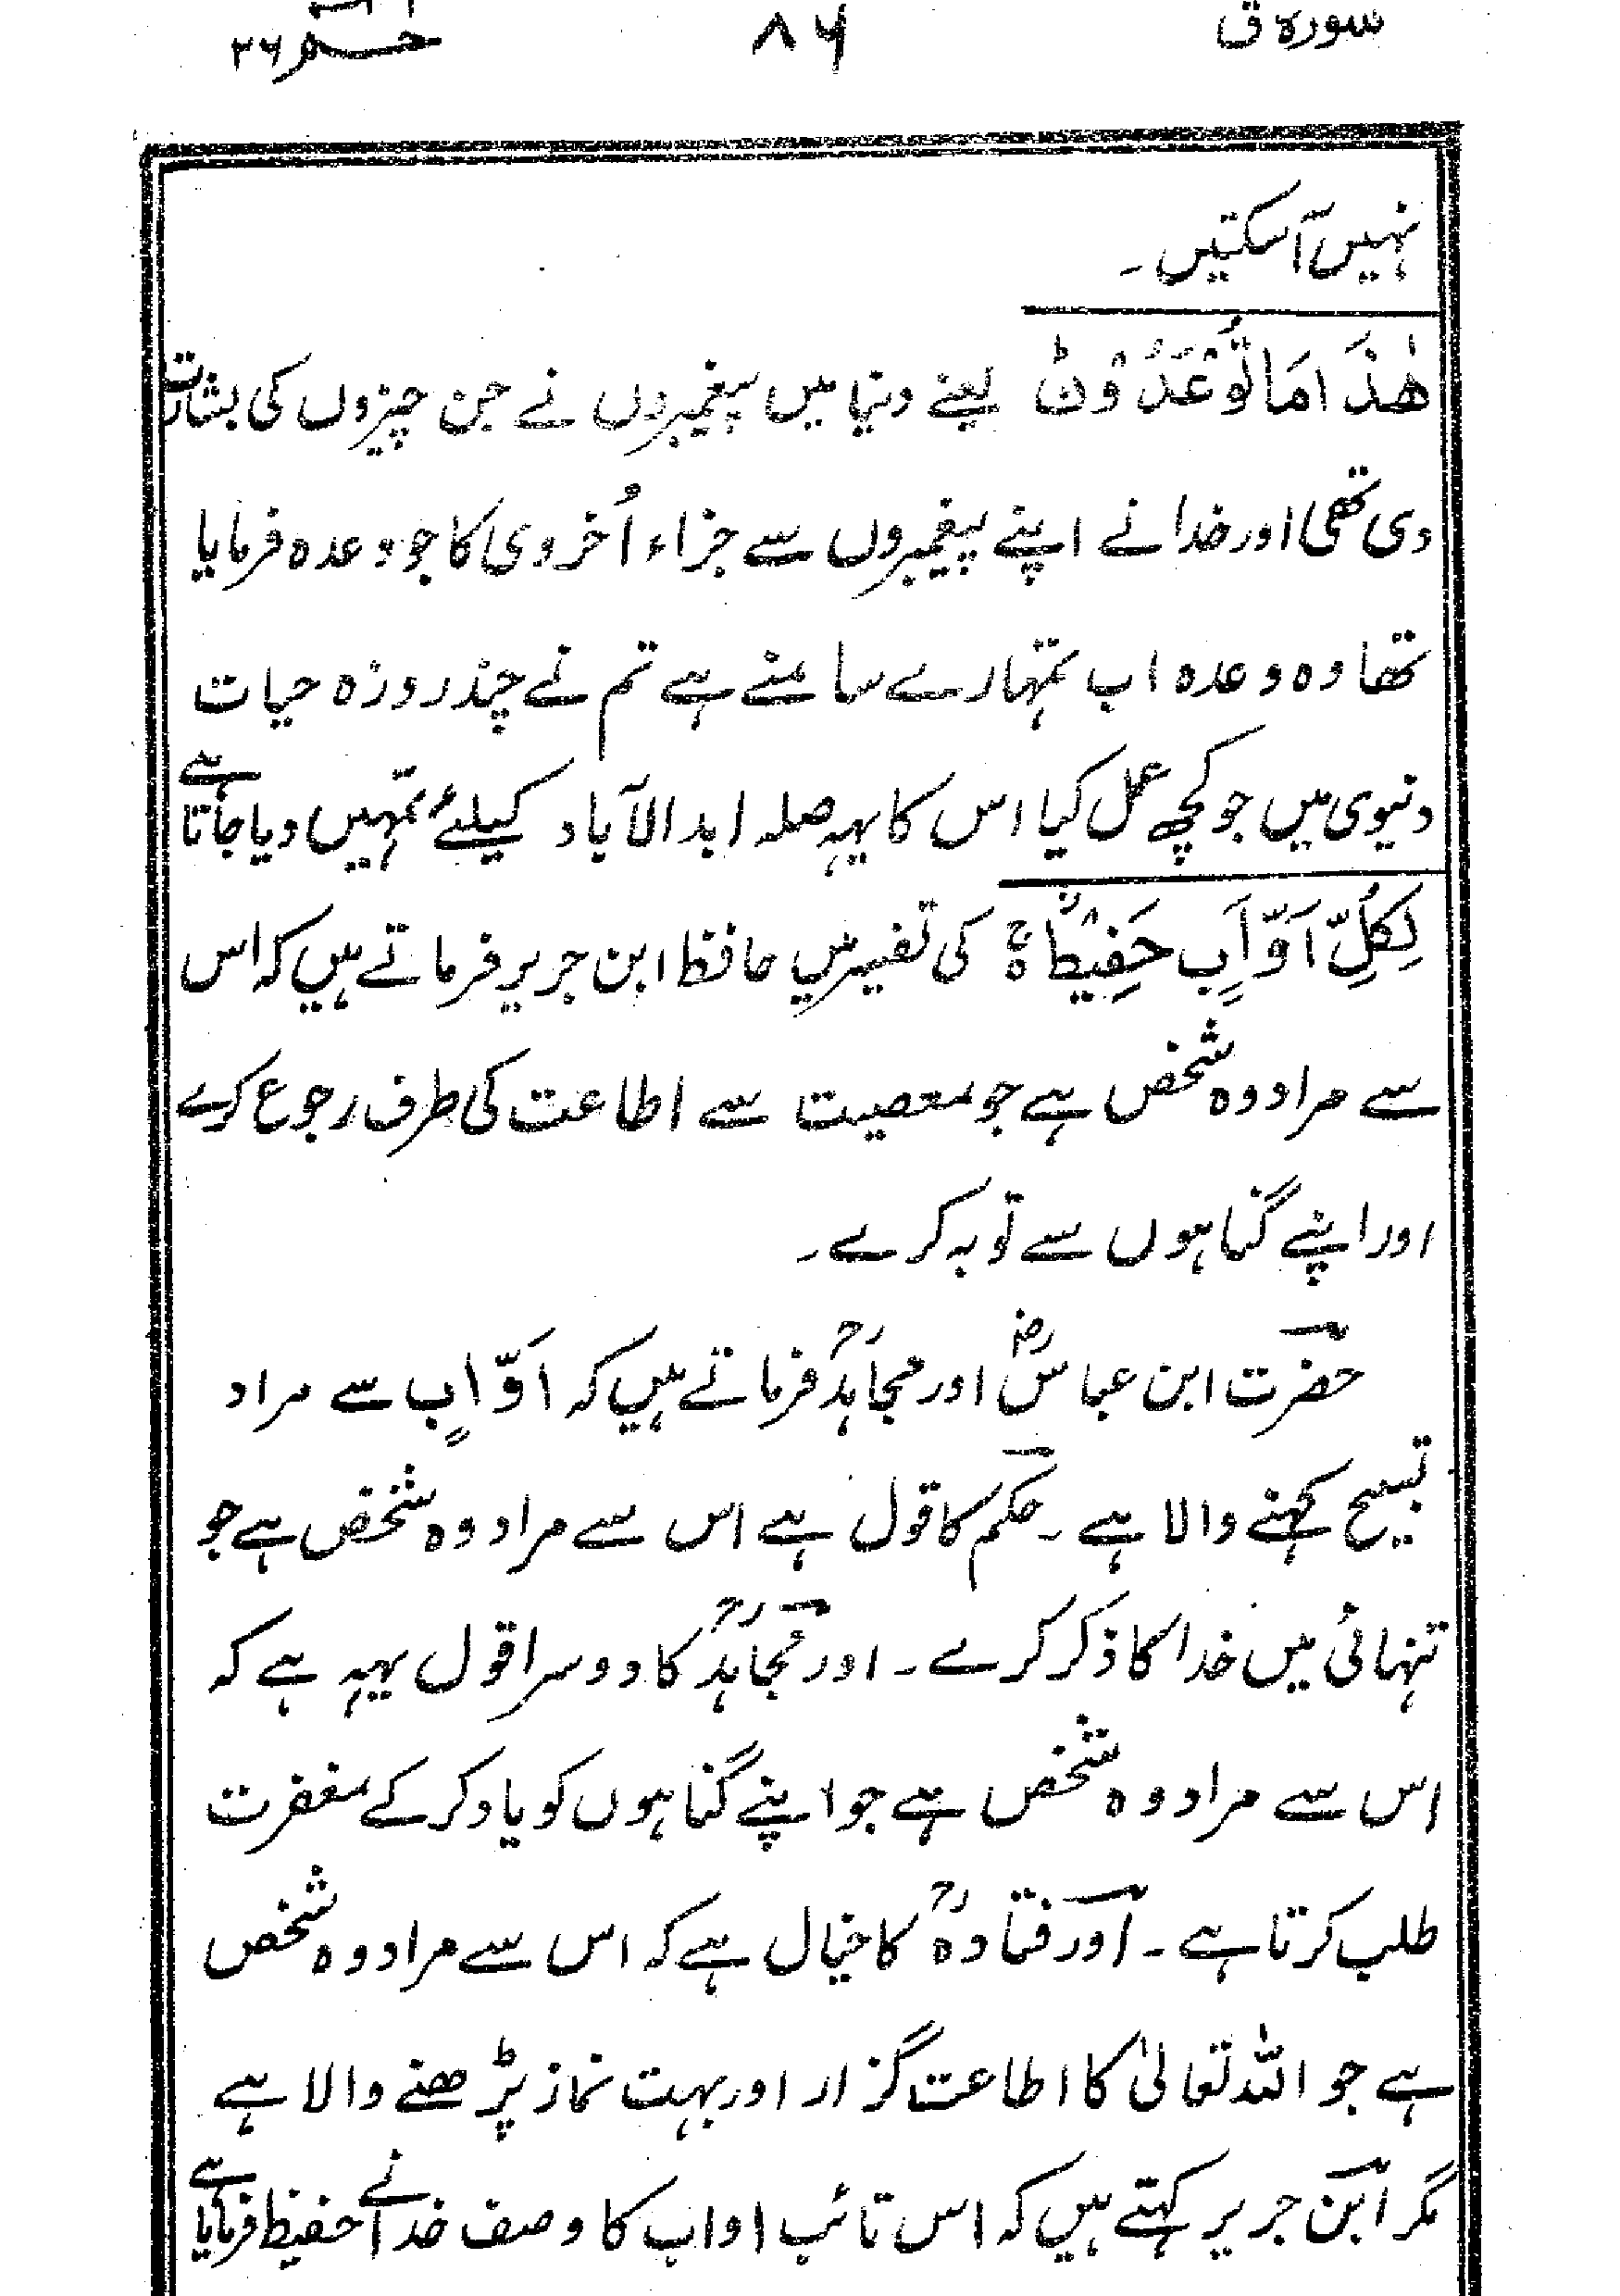 سورہ ق ۸۶ حٰم ۲۶
نہیں آسکتیں۔
ھٰذَا مَا تُوْعَدُوْنَ یعنے دنیا میں پیغمبروں نے جن چیزوں کی بشارت
دی تھی اور خدا نے اپنے پیغمبروں سے جزاء اُخروی کا جو وعدہ فرمایا
تھا وہ وعدہ اب تمہارے سامنے ہے تم نے چند روزہ حیات
دنیوی میں جو کچھ عمل کیا اس کا یہہ صلہ ابدالآباد کیلئے تمہیں دیا جاتا ہے
لِکُلِّ اَوَّابٍ حَفِیْظٍ کی تفسیر میں حافظ ابن جریر فرماتے ہیں کہ اس
سے مراد وہ شخص ہے جو معصیت سے اطاعت کی طرف رجوع کرے
اور اپنے گناہوں سے توبہ کرے۔
حضرت ابن عباسؓ اور مجاہدؒ فرماتے ہیں کہ اَوّابٍ سے مراد
تسبیح کہنے والا ہے۔ حکم کا قول ہے اس سے مراد وہ شخص ہے جو
تنہائی میں خدا کا ذکر کرے۔ اور مجاہدؒ کا دوسرا قول یہہ ہے کہ
اس سے مراد وہ شخص ہے جو اپنے گناہوں کو یاد کر کے مغفرت
طلب کرتا ہے۔ اور قتادہؒ کا خیال ہے کہ اس سے مراد وہ شخص
ہے جو اللہ تعالیٰ کا اطاعت گزار اور بہت نماز پڑھنے والا ہے
مگر ابن جریر کہتے ہیں کہ اس تائب اواب کا وصف خدا نے حفیظ فرمایا ہے